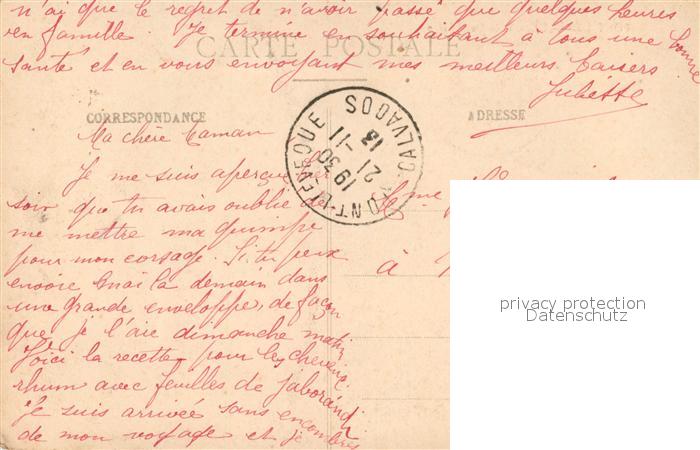 n'ai que le regret de n'avoir passé que quelques heures
en famille. Je termine en souhaitant à tous une bonne
CARTE POSTALE
santé et en vous envoyant mes meilleurs baisers
Juliette
CORRESPONDANCE
ADRESSE
PONT-L'EVEQUE CALVADOS
19 30
21 -11
13
Ma chère Maman
Je me suis aperçue
soir que tu avais oublié de
me mettre ma guimpe
pour mon corsage. Si tu peux
envoie la demain dans
une grande enveloppe, de façon
que je l'aie dimanche matin
Voici la recette pour les cheveux
rhum avec feuilles de jaborandi
Je suis arrivée sans encombres
de mon voyage et je
à
privacy protection
Datenschutz